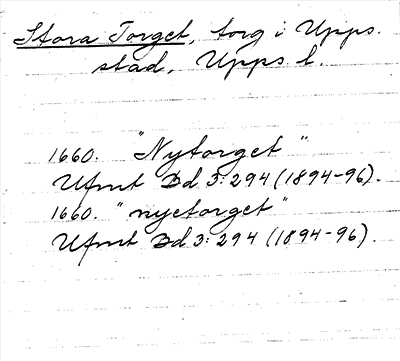 Stora Torget, torg i Upps.
stad, Upps. l.
1660. "Nytorget"
Ufmt Bd 3:294 (1894-96).
1660. "nyetorget"
Ufmt Bd 3:294 (1894-96).